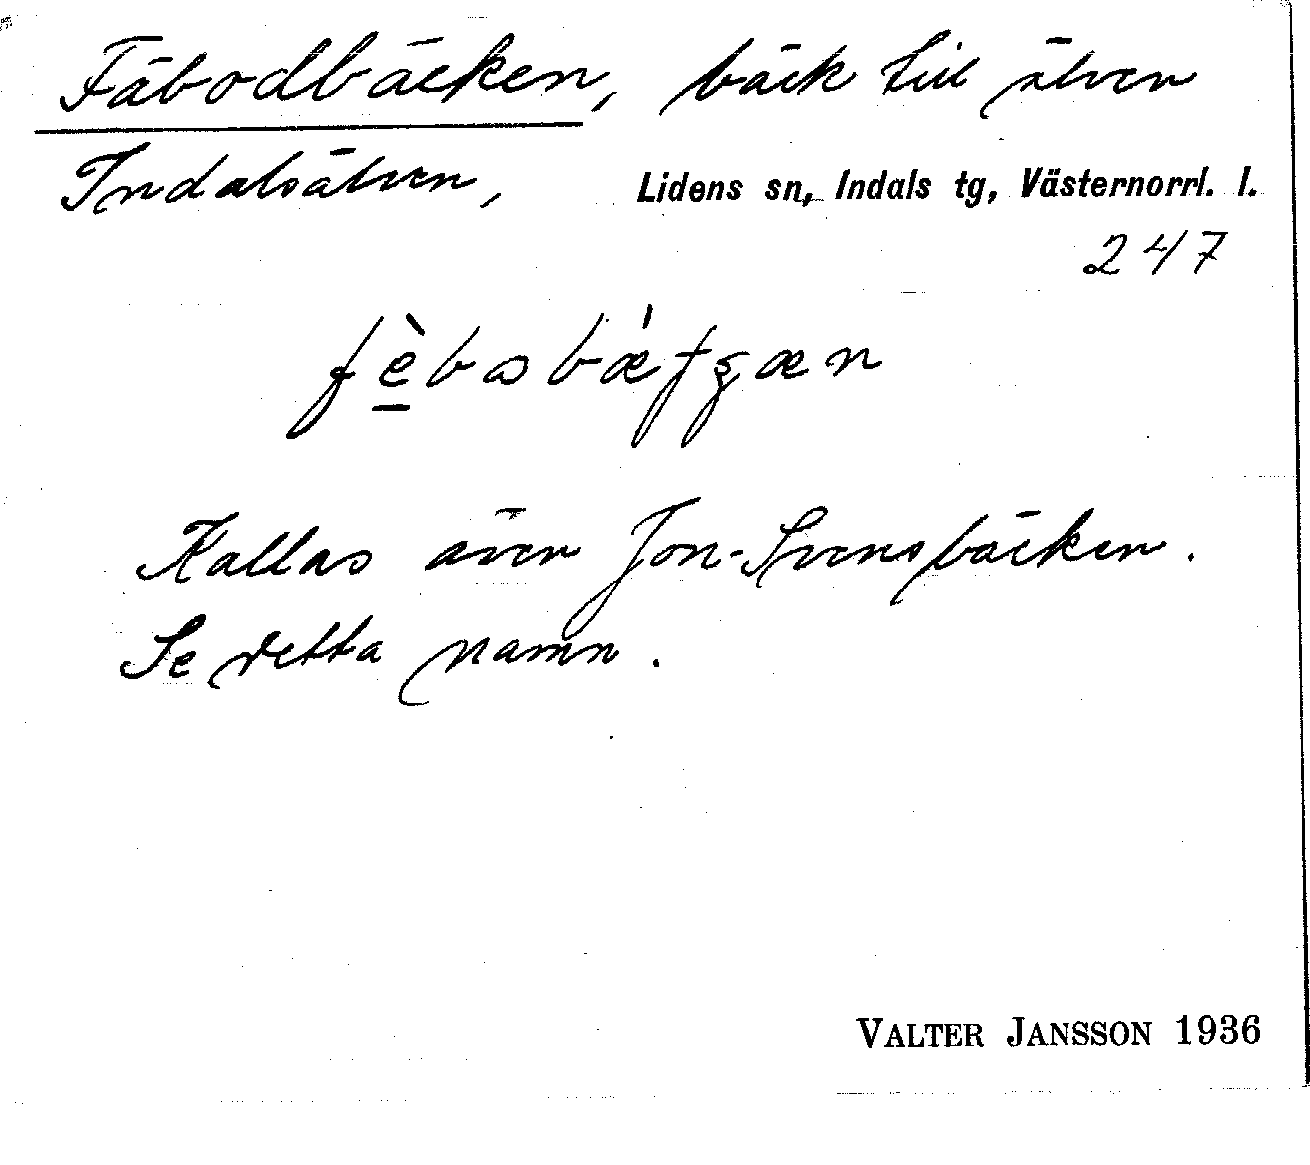 Fäbodbäcken, bäck till älven
Indalsälven, Lidens sn, Indals tg, Västernorrl. l.
247
Kallas även Jon-Svensbäcken.
Se detta namn.
VALTER JANSSON 1936